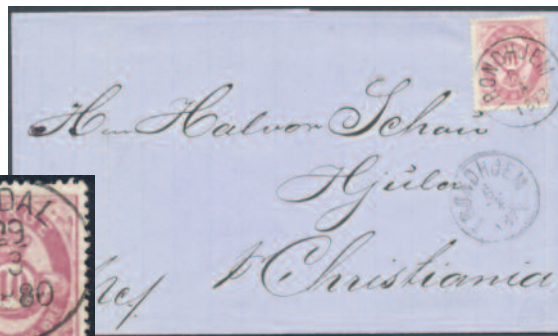 RONDHJEM
Hrr Halvor Schou
Hjula
TRONDHJEM
Christiania
DAL
29
3
80